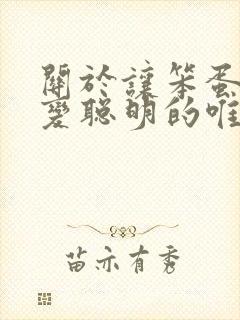 關於讓笨蛋
變聰明的唯
苗亦有秀